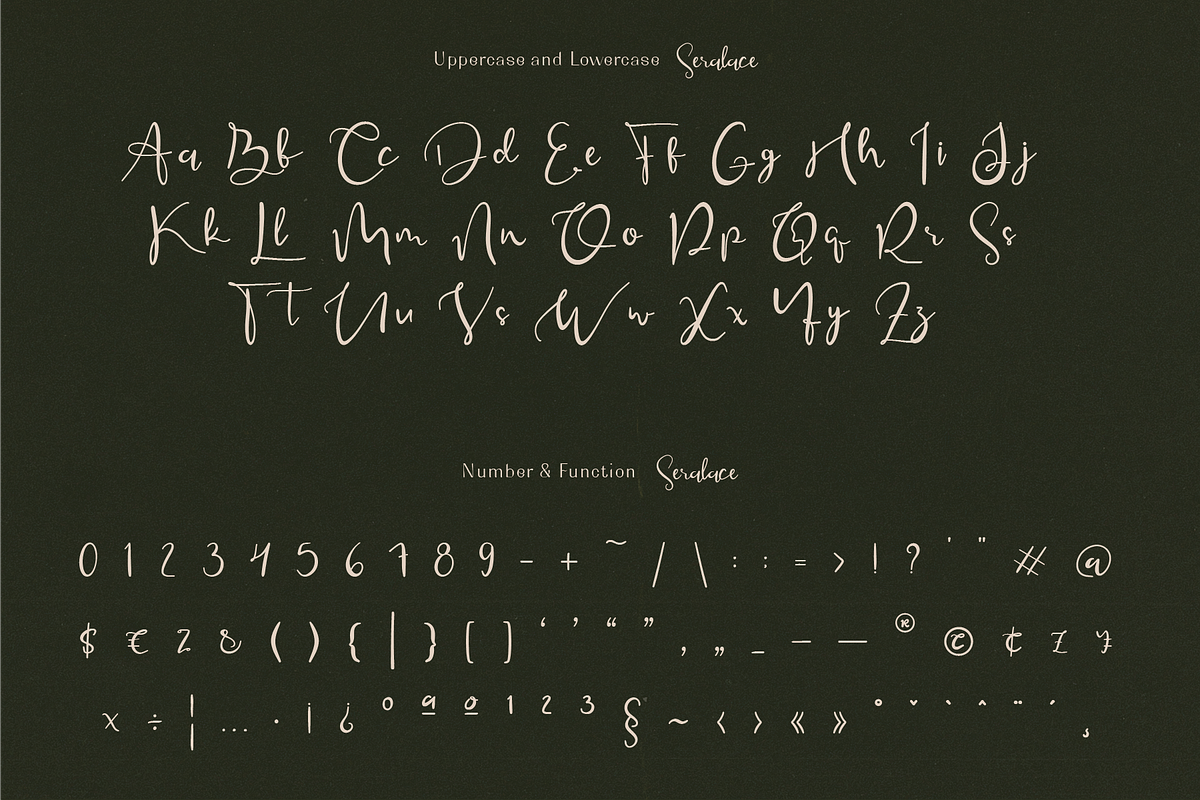 Uppercase and Lowercase Seralace
Aa Bb Cc Dd Ee Ff Gg Hh Ii Jj
Kk Ll Mm Nn Oo Pp Qq Rr Ss
Tt Uu Vv Ww Xx Yy Zz
Number & Function Seralace
0 1 2 3 4 5 6 7 8 9 - + ~ / \ : ; = > ! ? ' " # @
$ € 2 & ( ) { | } [ ] ‘ ’ “ ” , „ _ – — ® © ¢ £ ¥
× ÷ ¦ … · ¡ ¿ º ª º 1 2 3 § ~ ‹ › « » ° ˇ ` ^ ¨ ´ ¸